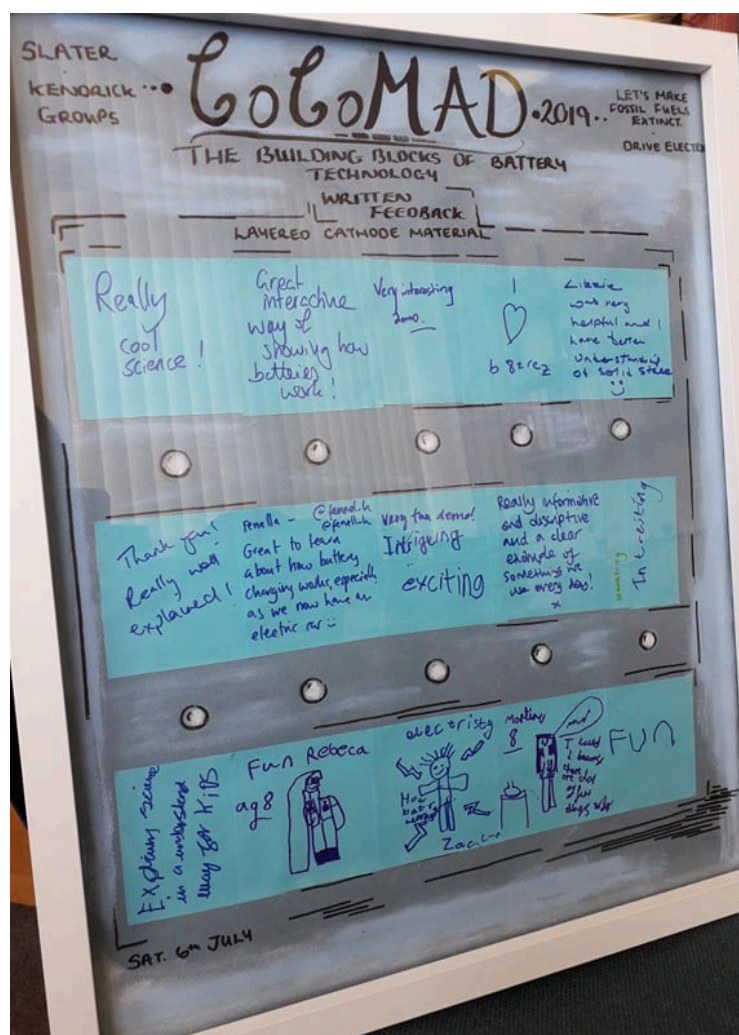 SLATER
KENDRICK
GROUPS
CoCoMAD
2019
LET'S MAKE
FOSSIL FUELS
EXTINCT.
DRIVE ELECTR
THE BUILDING BLOCKS OF BATTERY
TECHNOLOGY
WRITTEN
FEEDBACK
LAYERED CATHODE MATERIAL
Really
cool
science!
Great
interactive
way of
showing how
batteries
work!
Very interesting
demo.
I
Lizzie
was very
helpful and I
have better
understanding
of solid state
Thank you!
Really well
explained!
Fenella - @fennel.h
@fenellah
Great to learn
about how battery
charging works, especially
as we now have an
electric car
Very fun demo!
Intriguing
exciting
Really informative
and discriptive
and a clear
example of
something we
use every day!
x
amazing
Intresting
Explaing science
in a understand
way for kids
Fun Rebeca
ag8
electristy
How
Zach
8
FUN
SAT. 6th JULY